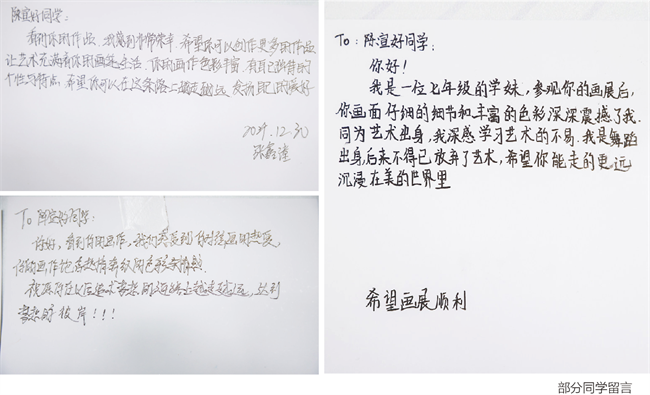 陈宣好同学:
看到你的作品,我感到非常荣幸。希望你可以创作更多的作品
让艺术充满着你的画笔生活。你的画作色彩丰富,有自己独特的
个性与特点,希望你可以在这条路上越走越远,发扬自己的爱好
2024.12.30
To 陈宣好同学:
你好,看到你的画作,我们感受到你对绘画的热爱,
你的画作饱含热情
祝愿你在以后 的道路上越走越远,达到
梦想的彼岸!!!
To:陈宣好同学:
你好!
我是一位七年级的学妹,参观你的画展后,
你画面仔细的细节和丰富的色彩深深震撼了我.
同为艺术出身,我深感学习艺术的不易.我是舞蹈
出身,后来不得已放弃了艺术,希望你能走的更远
沉浸在美的世界里
希望画展顺利
部分同学留言